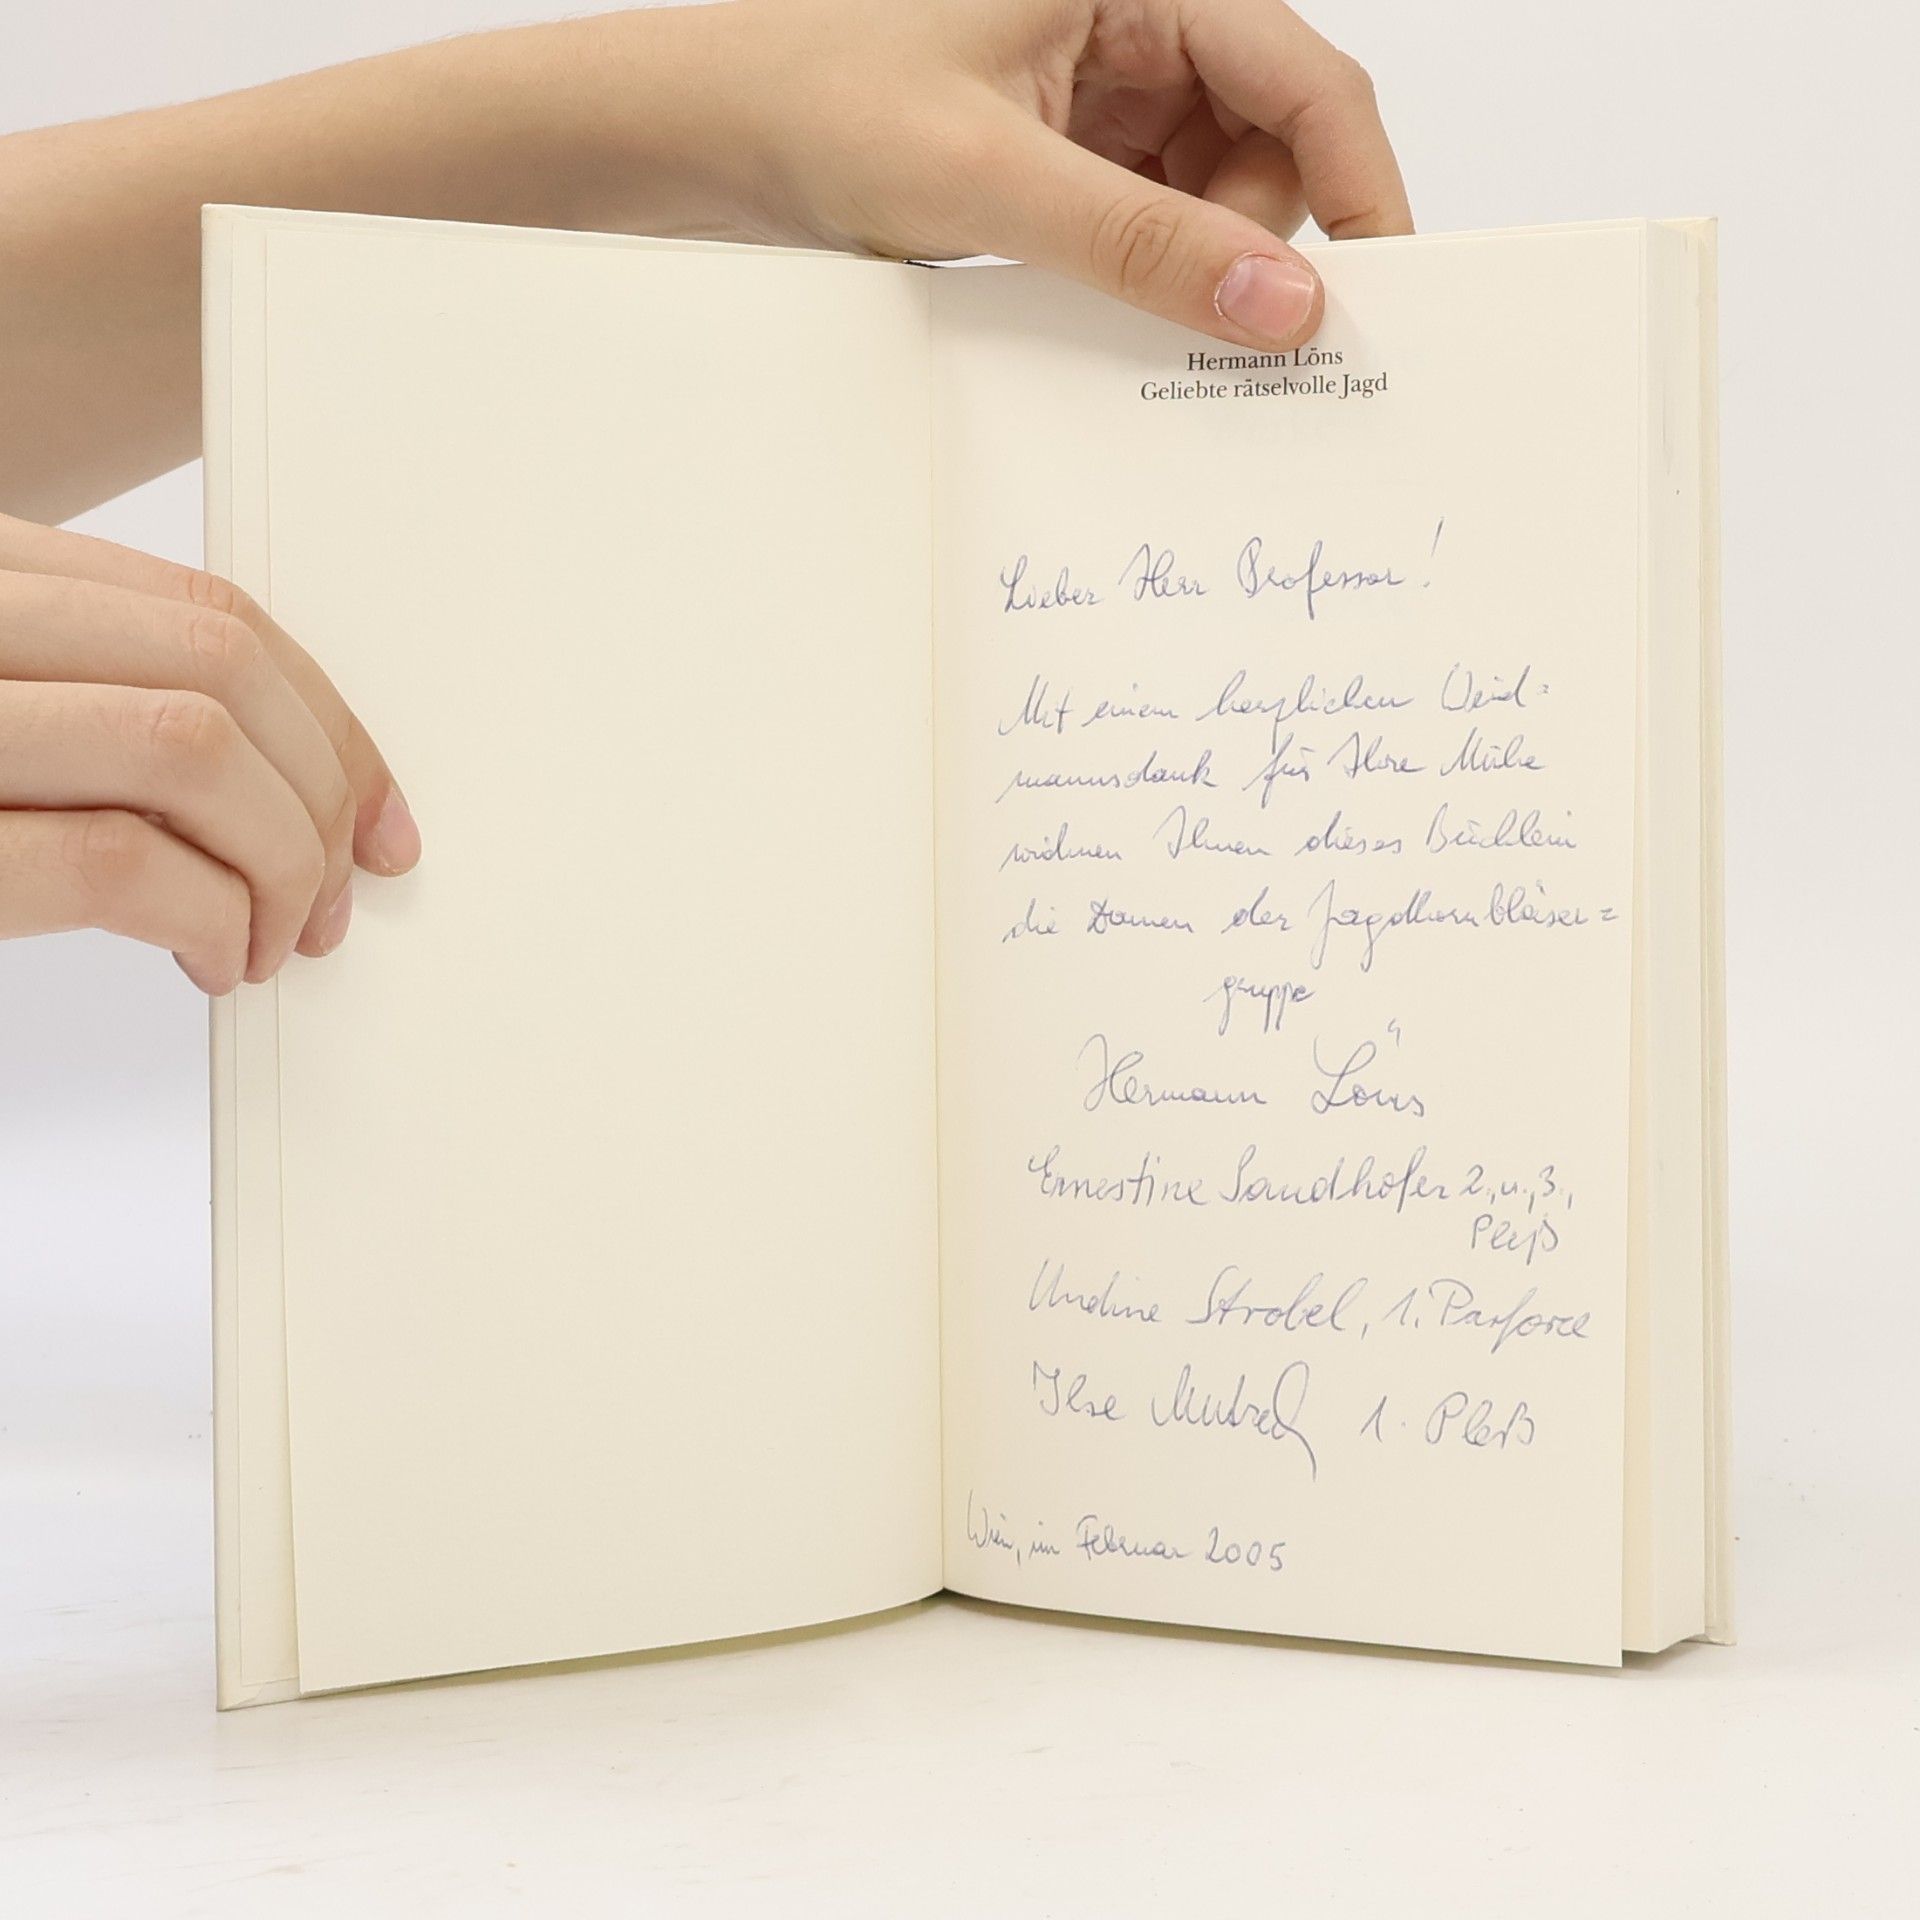 Hermann Löns
Geliebte rätselvolle Jagd
Lieber Herr Professor!
Mit einem herzlichen Weid=
mannsdank für Ihre Mühe
widmen Ihnen dieses Büchlein
die Damen der Jagdhornbläser=
gruppe
Hermann Löns
Ernestine Sandhofer 2., u., 3.,
Pleß
Undine Strobel, 1. Parforce
Ilse 1. Pleß
Wien, im Februar 2005